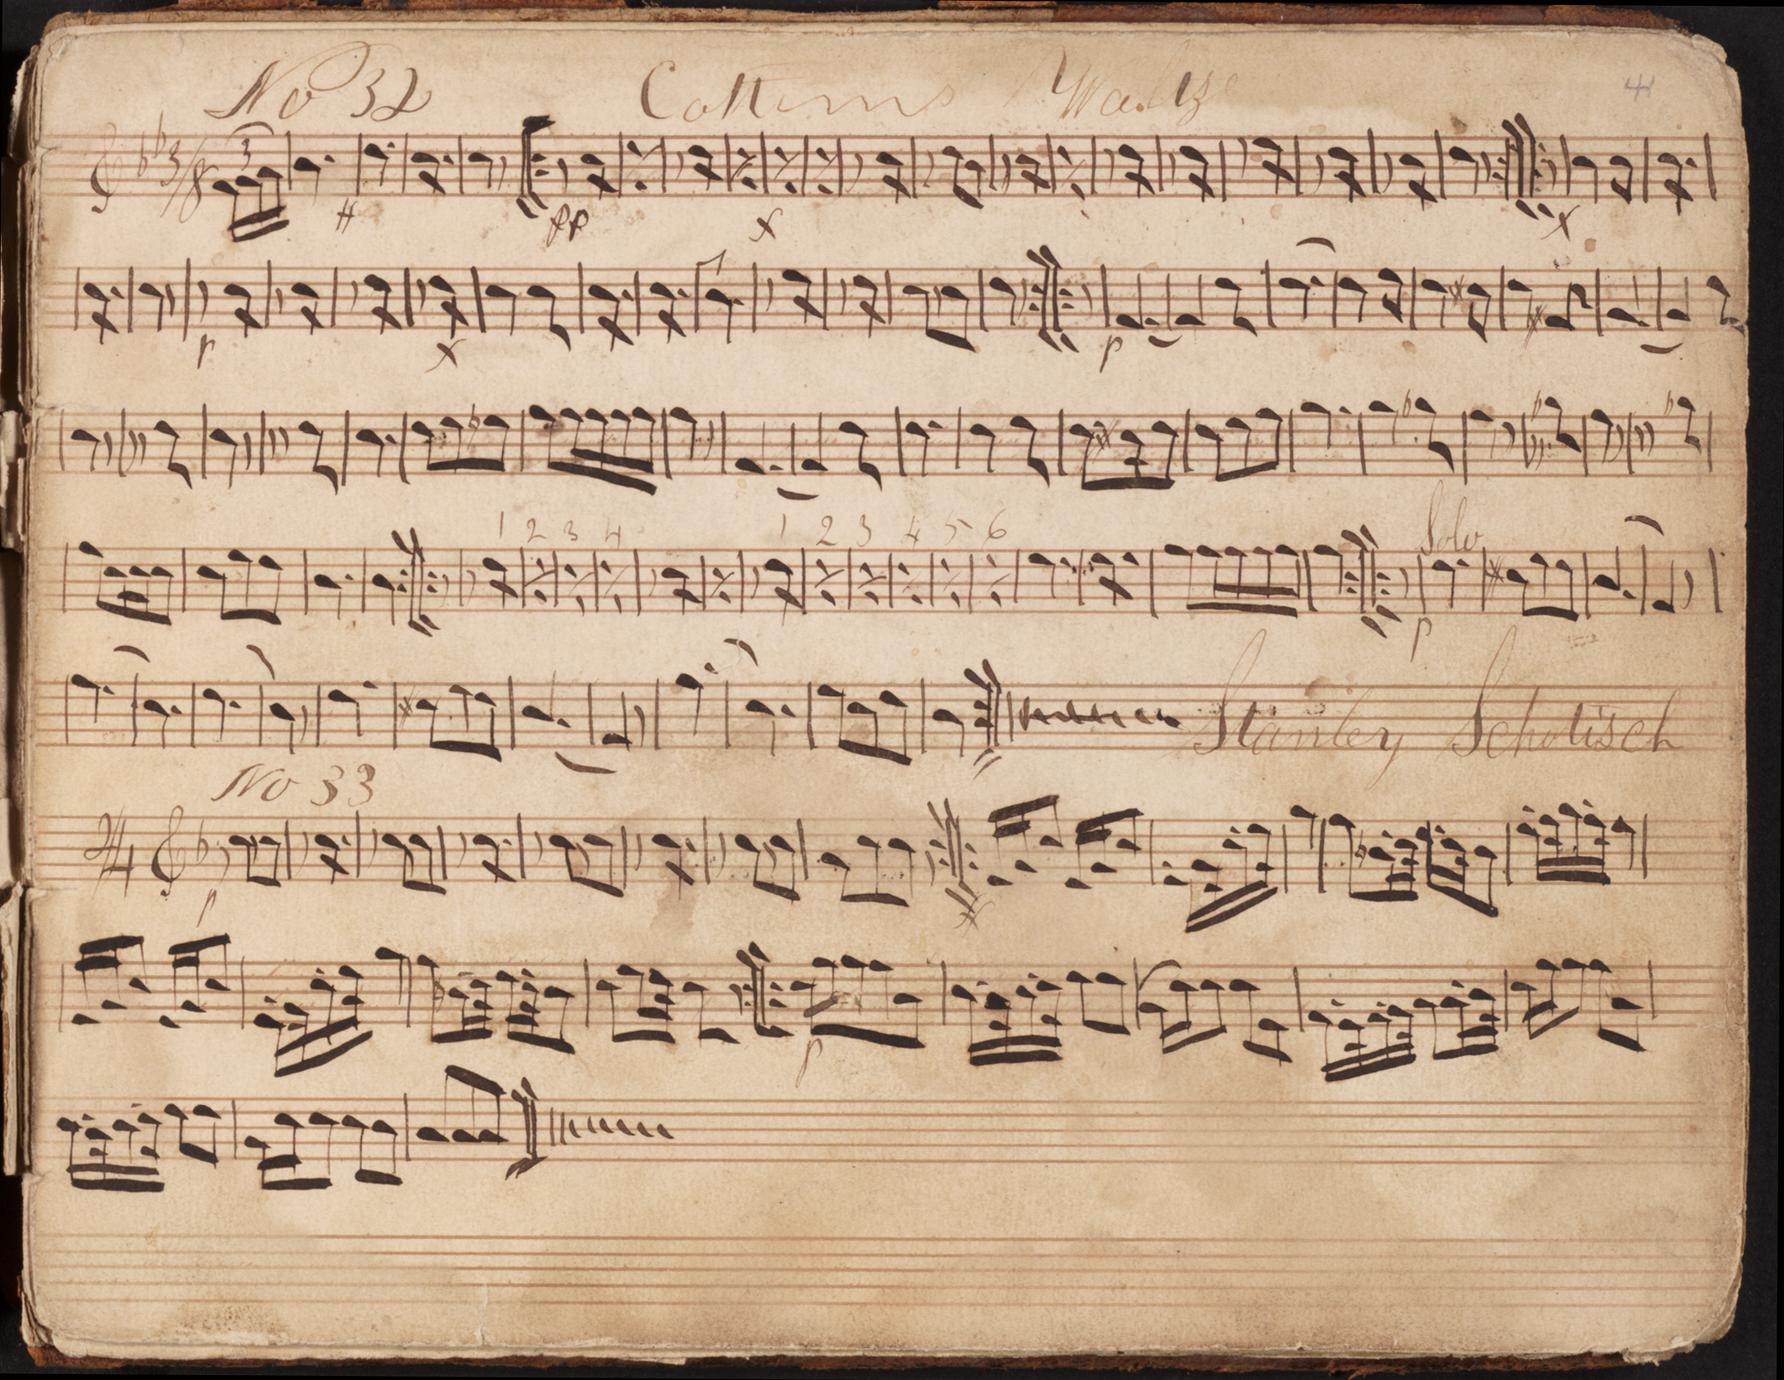 No 32 Cottems Waltze 41
3/8 3
pp
p p
1 2 3 4 1 2 3 4 5 6 Solo
p
Stanley Schotisch
No 33
2/4
p
p